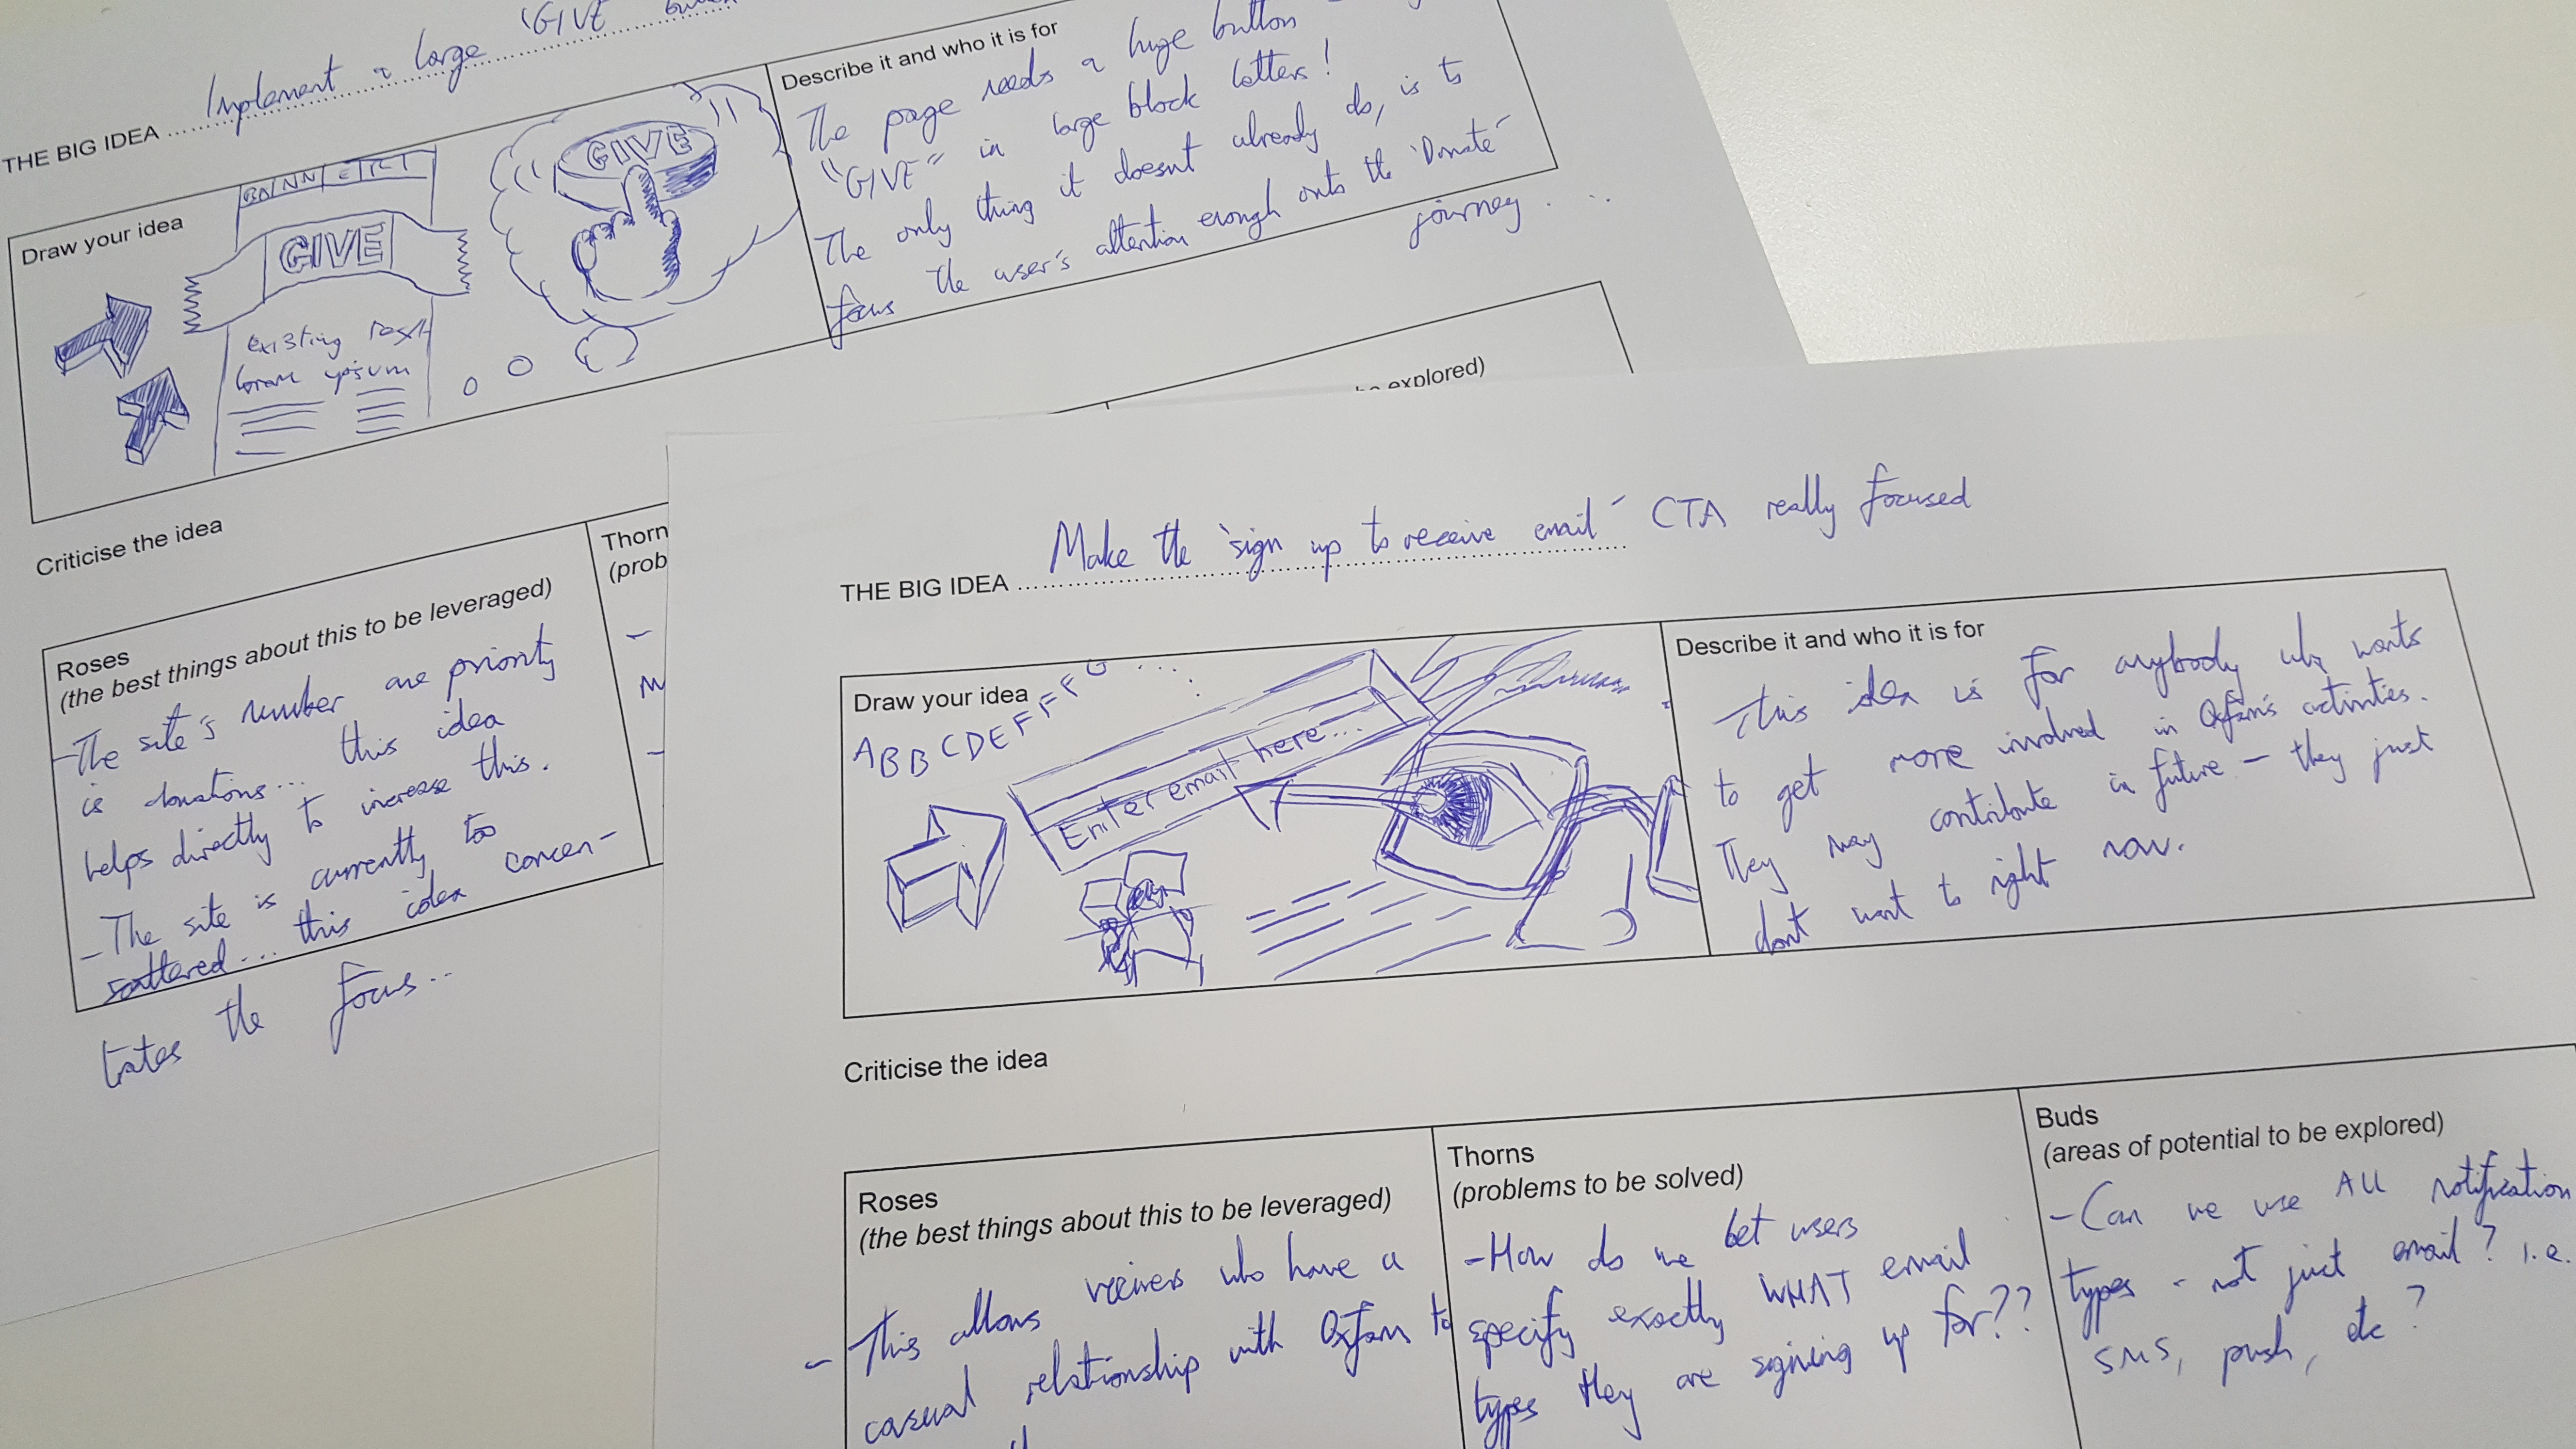 Implement a large "GIVE
THE BIG IDEA
Draw your idea
BANNER
GIVE
existing
lorem ipsum
GIVE
Describe it and who it is for
The page needs a huge button -
"GIVE" in large block letters!
The only thing it doesnt already do, is to
focus the user's attention enough onto the 'Donate'
journey...
Criticise the idea
Roses
(the best things about this to be leveraged)
-The site's number one priority
is donations... this idea
helps directly to increase this.
- The site is currently too
scattered... this idea concen-
trates the focus...
Thorn
(prob
explored)
Make the 'sign up to receive email' CTA really focused
THE BIG IDEA
Draw your idea
ABBCDEFFFG...
Enter email here...
Describe it and who it is for
This idea is for anybody who wants
to get more involved in Oxfam's activities.
They may contribute in future - they just
dont want to right now.
Criticise the idea
Roses
(the best things about this to be leveraged)
- This allows viewers who have a
casual relationship with Oxfam to
Thorns
(problems to be solved)
-How do we let users
specify exactly WHAT email
types they are signing up for??
Buds
(areas of potential to be explored)
-Can we use ALL notification
types - not just email? i.e.
SMS, push, etc?